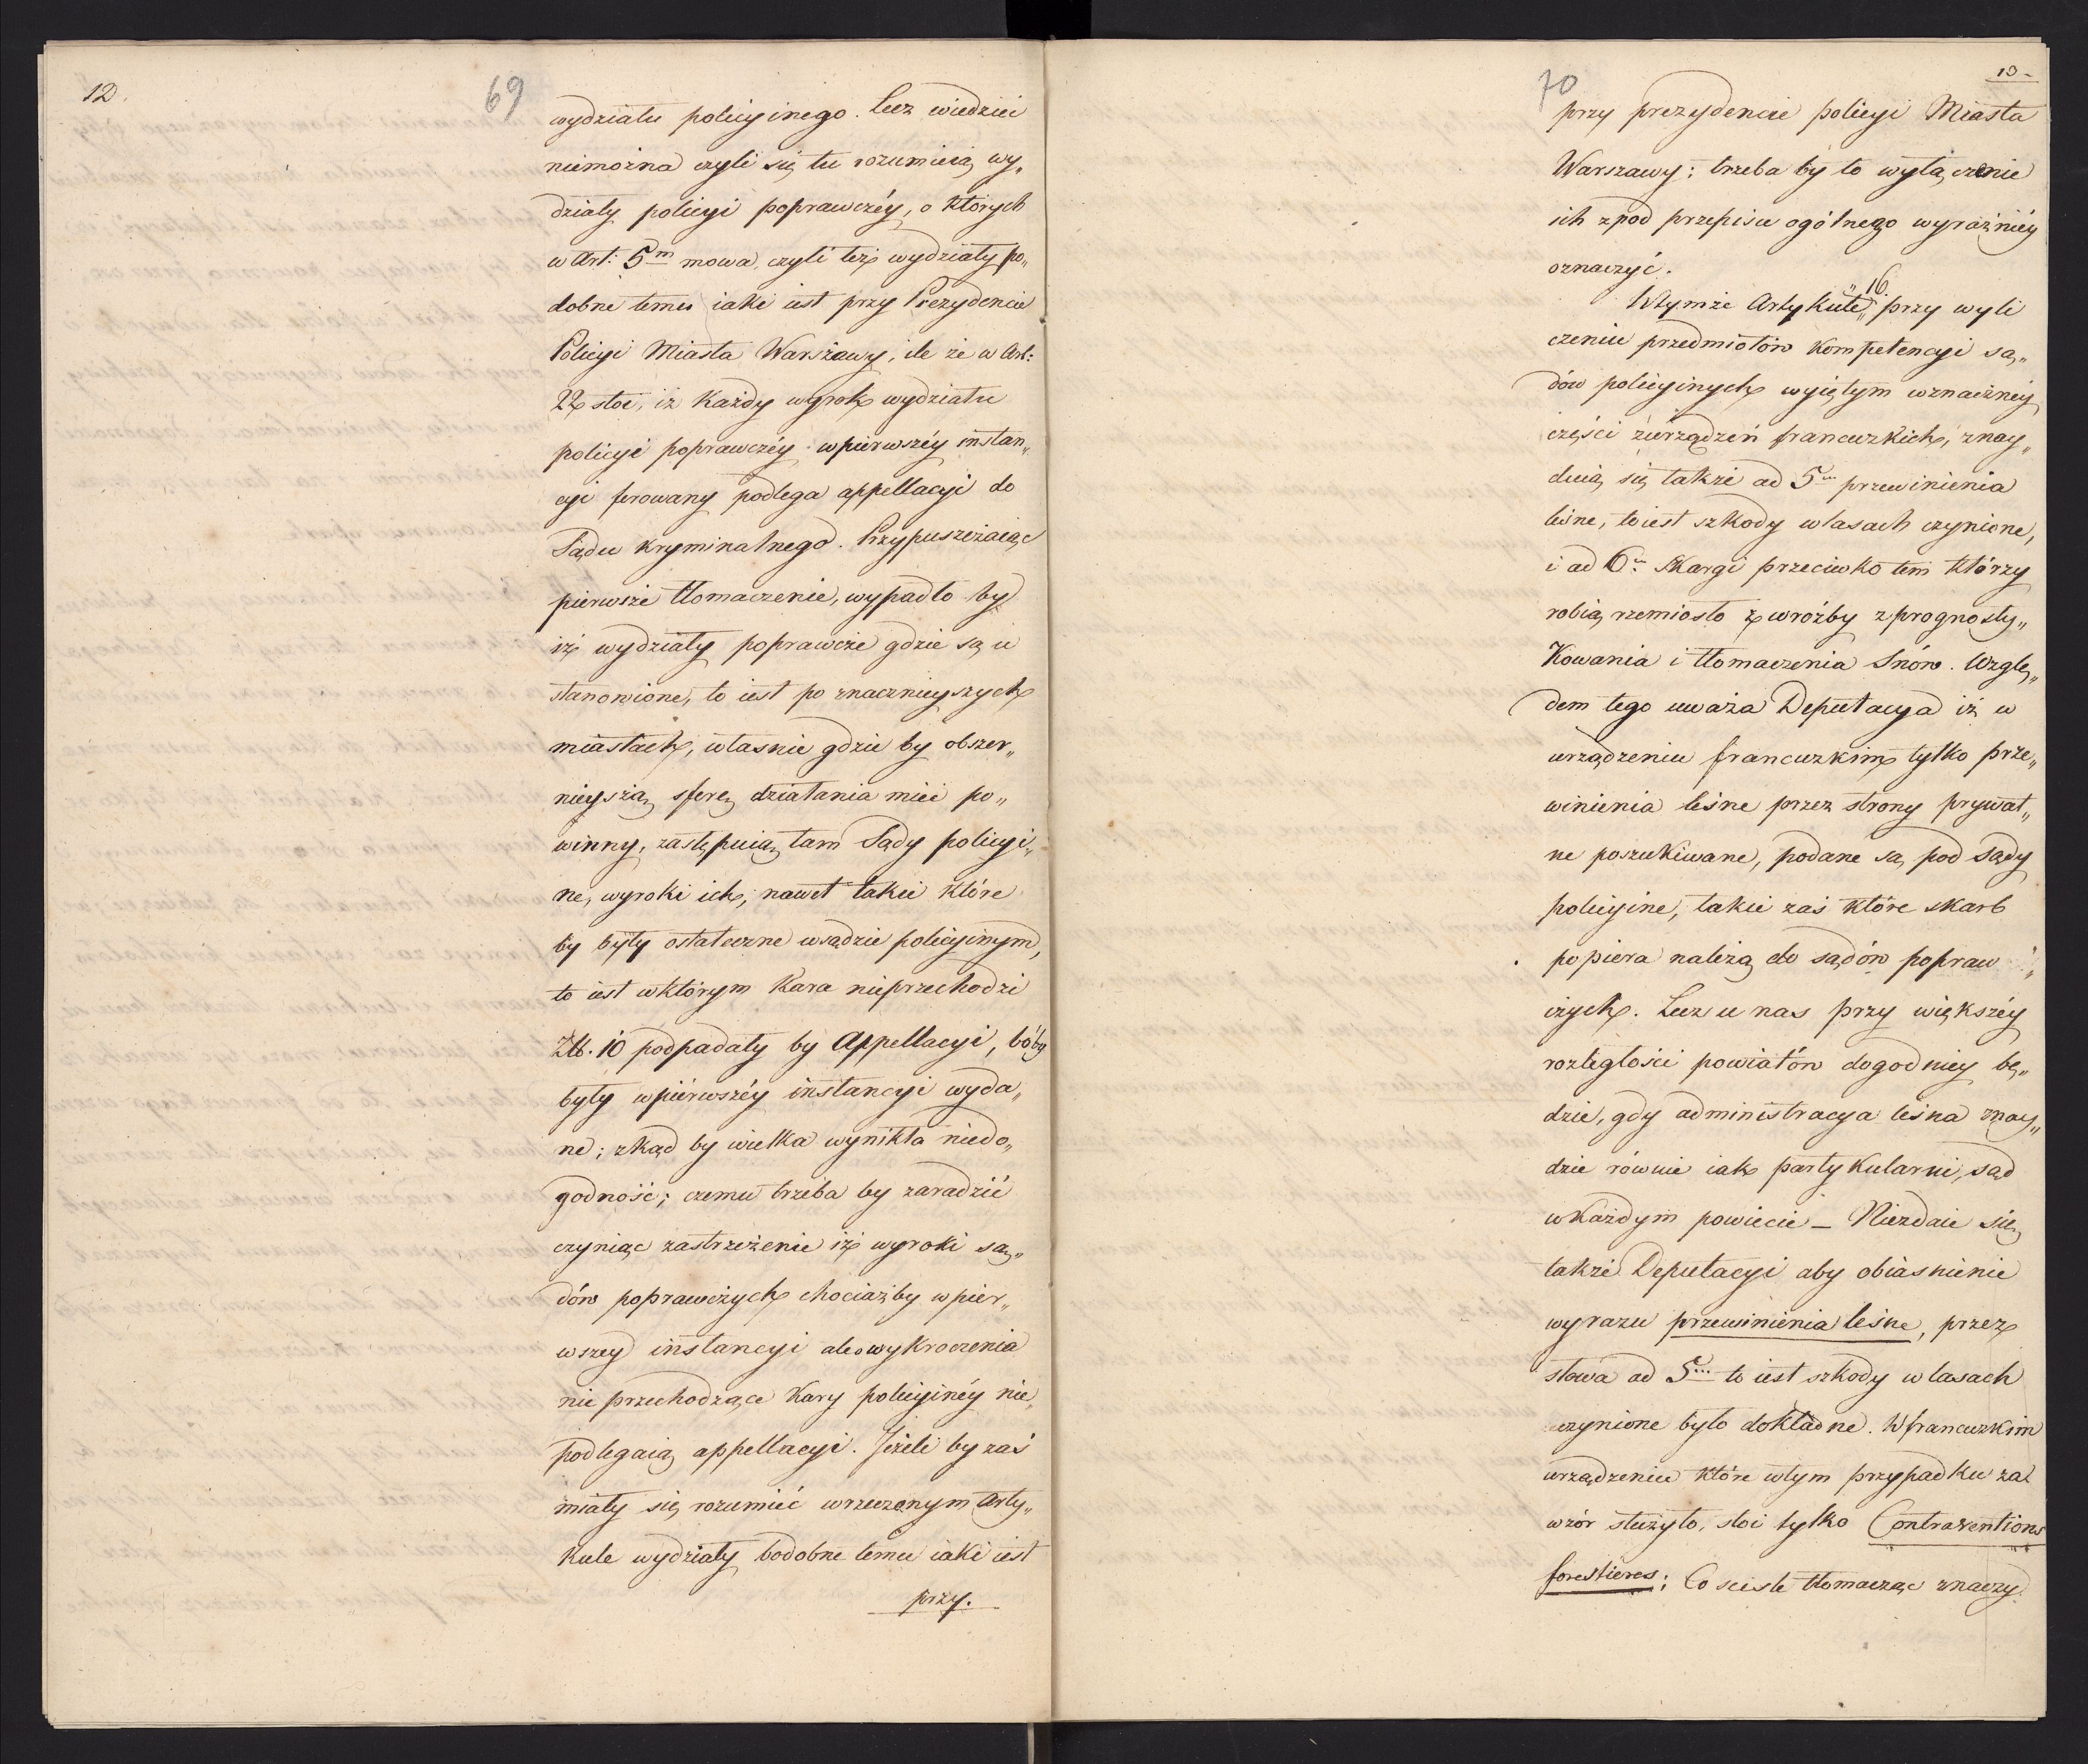 12.
69
wydziału policyinego. Lecz wiedzieć
niemożna czyli się tu rozumieią wy„
działy policyi poprawczéy, o których
w Art: 5m mowa, czyli też wydziały po„
dobne temu iaki iest przy Prezydencie
Policyi Miasta Warszawy, ile że w Art:
22 stoi, iż każdy wyrok wydziału
policyi poprawczéy w pierwszéy instan„
cyi ferowany podlega appellacyi do
Sądu kryminalnego. Przypuszczaiąc
pierwsze tłomaczenie, wypadło by
iż wydziały poprawcze gdzie są u
stanowione, to iest po znacznieyszych
miastach, własnie gdzie by obszer„
nieyszą sferę działania mieć po„
winny, zastępuią tam Sądy policyi„
ne, wyroki ich, nawet takie które
by były ostateczne w sądzie policyinym,
to iest w którym kara nieprzechodzi
Złł. 10 podpadały by Appellacyi, bóby
były w piérwszéy instancyi wyda„
ne; zkąd by wielka wynikła niedo„
godność; czemu trzeba by zaradzić
czyniąc zastrzeżenie iż wyroki są„
dów poprawczych chociażby w pier„
wszey instancyi ale o wykroczenia
nie przechodzące kary policyinéy nie„
podlegaią appellacyi. Jeżeli by zaś
miały się rozumieć w rzeczonym Arty„
kule wydziały bodobne temu iaki iest
przy.
70
13-
przy prezydencie policyi Miasta
Warszawy; trzeba by to wyłączenie
ich zpod przepisu ogólnego wyraźniéy
oznaczyć.
16.
W tymże Artykule„ przy wyli
czeniu przedmiotów kompetencyi są„
dów policyinych wyiętym w znaczney
części z urządzeń francuzkich, znay„
duią się także ad 5m przewinienia
leśne, to iest szkody w lasach czynione,
i ad 6m Skargi przeciwko tem którzy
robią rzemiosło z wróżby z prognosty„
kowania i tłomaczenia Snów. Wzglę„
dem tego uważa Deputacya iż w
urządzeniu francuzkim tylko prze„
winienia leśne przez strony prywat„
ne poszukiwane, podane są pod Sądy
policyine, takie zaś które skarb
popiera należą do sądów popraw„
czych. Lecz u nas przy większéy
rozległości powiatów dogodniey bę„
dzie, gdy administracya leśna znay„
dzie równie iak partykularni, sąd
w każdym powiecie – Niezdaie się
także Deputacyi aby obiasnienie
wyrazu przewinienia leśne, przez
słowa ad 5m to iest szkody w lasach
czynione było dokładne. W francuzkim
urządzeniu które w tym przypadku za
wzór służyło, stoi tylko Contraventions
forestieres; Co scisle tłomacząc znaczy